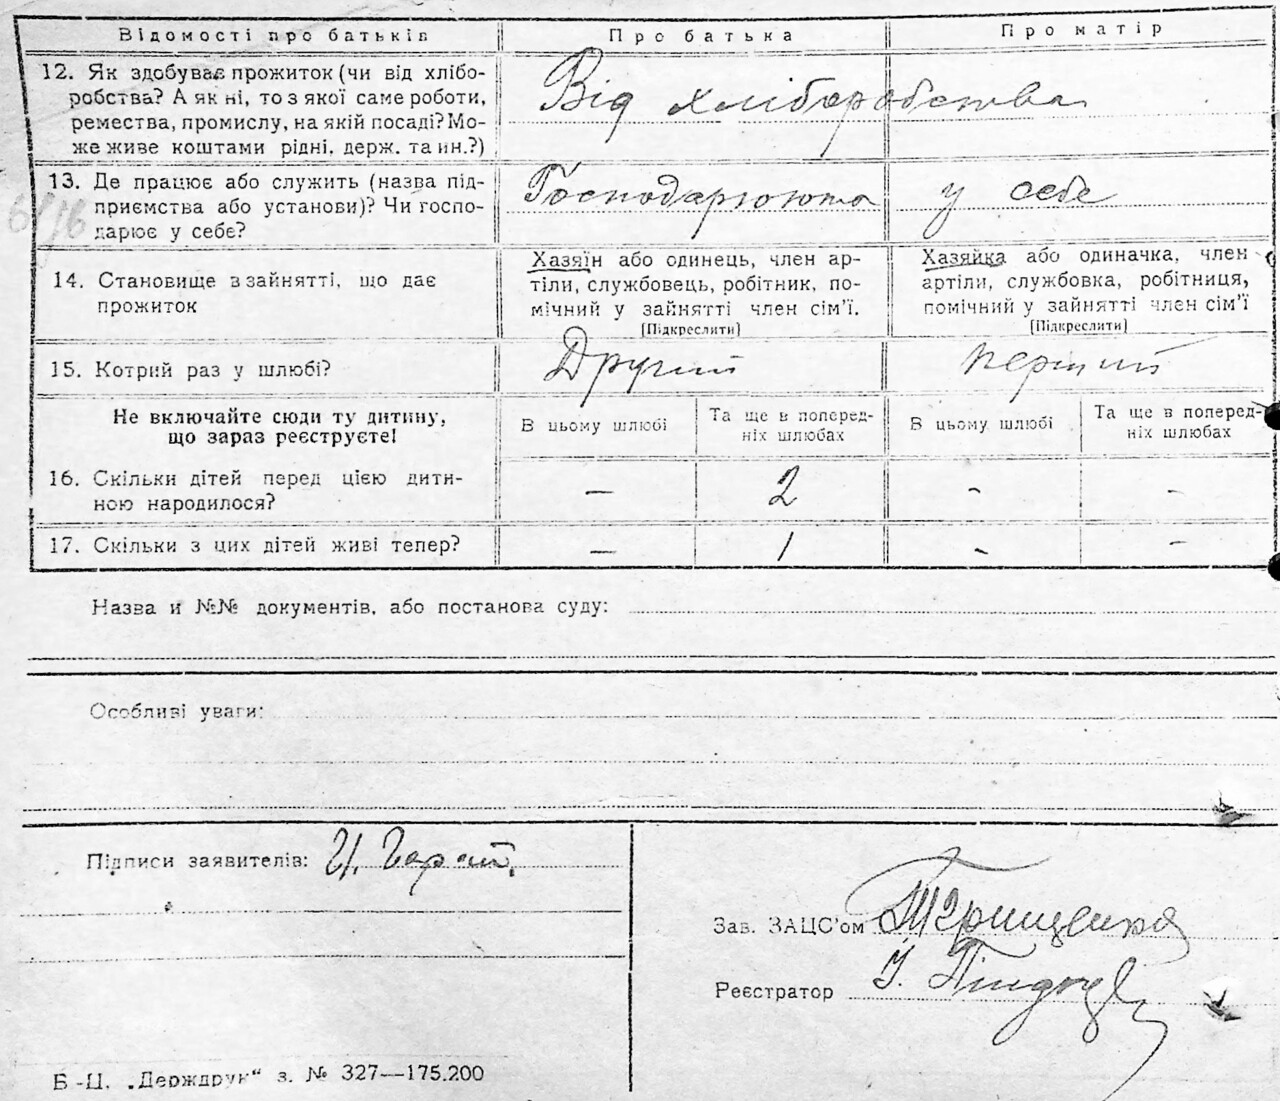 Відомості про батьків
Про батька
Про матір
12. Як здобуває прожиток (чи від хлібо-
робства? А як ні, то з якої саме роботи,
ремества, промислу, на якій посаді? Мо-
же живе коштами рідні, держ. та ин.?)
Від хліборобства
13. Де працює або служить (назва під-
приємства або установи)? Чи госпо-
дарює у себе?
Господарюють
у себе
14. Становище в занятті, що дає
прожиток
Хазяїн або одинець, член ар-
тіли, службовець, робітник, по-
мічний у зайнятті член сім'ї.
(Підкреслити)
Хазяйка або одиначка, член
артіли, службовка, робітниця,
помічний у зайнятті член сім'ї
(Підкреслити)
15. Котрий раз у шлюбі?
Другий
перший
Не включайте сюди ту дитину,
що зараз реєструєте!
В цьому шлюбі
Та ще в поперед-
ніх шлюбах
В цьому шлюбі
Та ще в поперед-
ніх шлюбах
16. Скільки дітей перед цією дити-
ною народилося?
– 2 - -
17. Скільки з цих дітей живі тепер?
– 1 - -
Назва и №№ документів, або постанова суду:
Особливі уваги:
Підписи заявителів:
Зав. ЗАЦС'ом
Реєстратор
Б-Ц. „Держдрук“ з. № 327—175.200